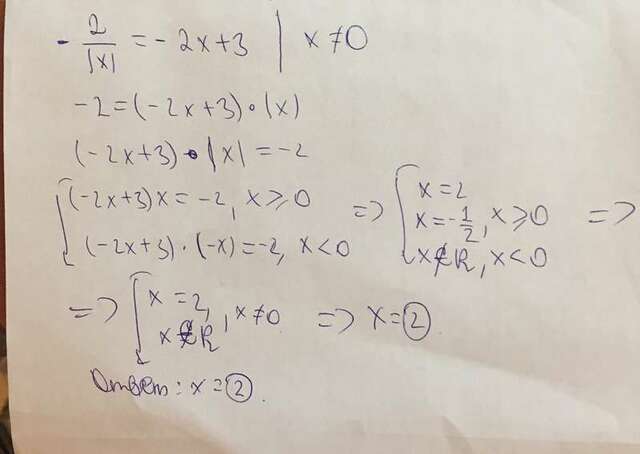 - 2/|x| = - 2x+3 | x ≠ 0
-2 = (-2x+3)·|x|
(-2x+3)·|x| = -2
[ (-2x+3)x = -2, x ⩾ 0
(-2x+3)·(-x) = -2, x < 0
=> [ x = 2
x = -1/2, x ⩾ 0
x ∉ R, x < 0
=>
=> [ x = 2,
x ∉ R, x ≠ 0
=> x = 2.
Ответ: x = 2.